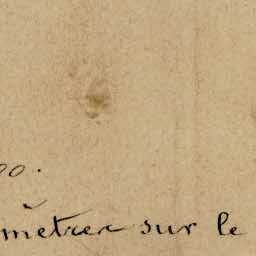 00.
mètrer sur le